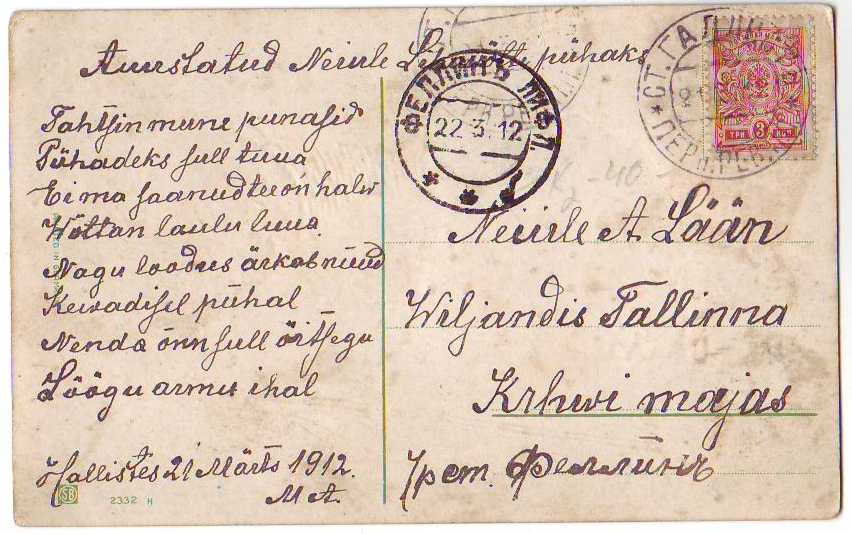 Armstatud Neiule pühaks
Tahtsin mune punasid
Pühadeks sull tuua
Ei ma saanud teen halw
Wõttan laulu luua
Nagu loodus ärkab nüüd
Kewadisel pühal
Nenda õnn sull õitsegu
Löögu armu ihal
Hallistes 21 Märts 1912.
M A.
SB
2332 H
СТ. ГАЛЛИ
ПЕРН. РЕВ.
ТРИ 3 КОП
ФЕЛЛИНЪ ЛИФЛ
22.3.12
Neiule A. Lään
Wiljandis Tallinna
Krhwi majas
Феллинъ